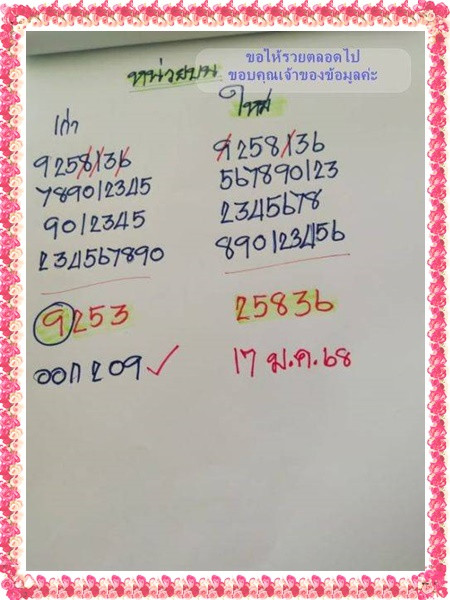 ขอให้รวยตลอดไป
ขอบคุณเจ้าของข้อมูลค่ะ
หน่วยบน
เก่า
9258136
789012345
9012345
234567890
9253
ออก 209 ✓
ใหม่
9258136
567890123
2345678
890123456
25836
17 ม.ค.68